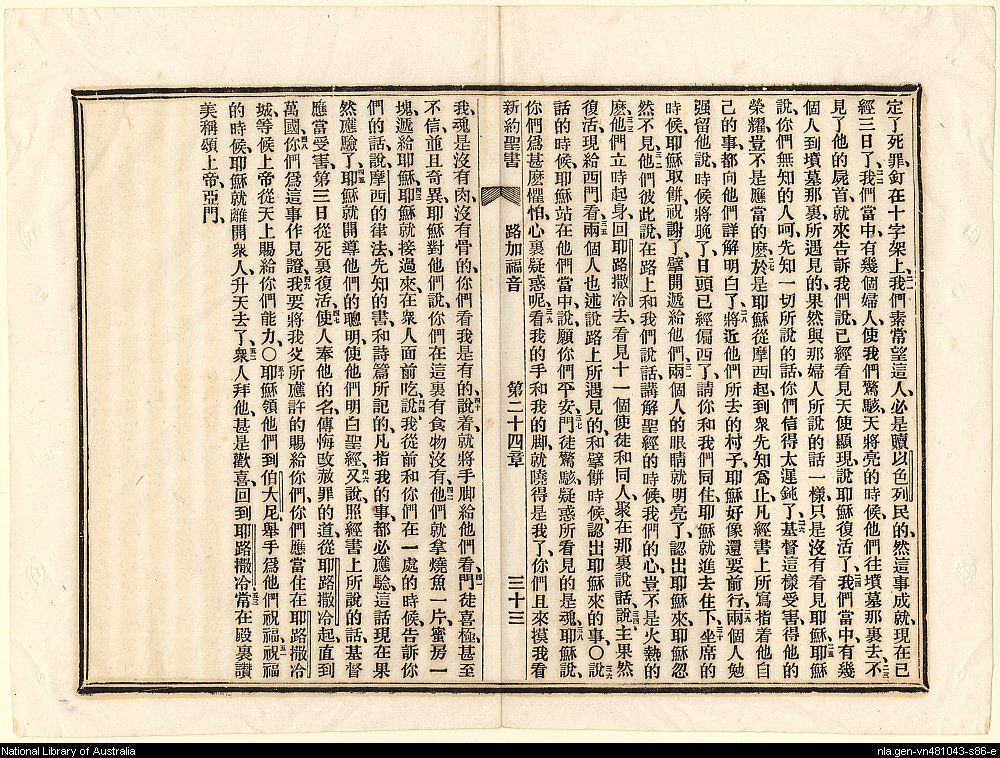 定了死罪、釘在十字架上、我們素常望這人、必是贖以色列民的、然這事成就、現在已
經三日了、我們當中、有幾個婦人、使我們驚駭、天將亮的時候、他們往墳墓那裏去、不
見了他的屍首、就來告訴我們說、已經看見天使顯現、說耶穌復活了、我們當中、有幾
個人到墳墓那裏、所遇見的、果然與那婦人所說的話一樣、只是沒有看見耶穌、耶穌
說、你們無知的人呵、先知一切所說的話、你們信得太遲鈍了、基督這樣受害、得他的
榮耀、豈不是應當的麽、於是耶穌從摩西起、到衆先知爲止、凡經書上所寫指着他自
己的事、都向他們詳解明白了、將近他們所去的村子、耶穌好像還要前行、兩個人勉
强留他、說、時候將晚了、日頭已經偏西了、請你和我們同住、耶穌就進去住下、坐席的
時候、耶穌取餅祝謝了、擘開遞給他們、兩個人的眼睛就明亮了、認出耶穌來、耶穌忽
然不見、他們彼此說、在路上和我們說話、講解聖經的時候、我們的心、豈不是火熱的
麽、他們立時起身、回耶路撒冷去、看見十一個使徒和同人、聚在那裏說話、說、主果然
復活、現給西門看、兩個人也述說路上所遇見的、和擘餅時候、認出耶穌來的事、〇說
話的時候、耶穌站在他們當中、說、願你們平安、門徒驚駭疑惑、所看見的是魂、耶穌說、
你們爲甚麽懼怕、心裏疑惑呢、看我的手和我的脚、就曉得是我了、你們且來摸我看
新約聖書 路加福音 第二十四章 三十三
我、魂是沒有肉、沒有骨的、你們看我是有的、說着就將手脚給他們看、門徒喜極、甚至
不信、並且奇異、耶穌對他們說、你們在這裏有食物沒有、他們就拿燒魚一片、蜜房一
塊、遞給耶穌、耶穌就接過來、在衆人面前吃、說、我從前和你們在一處的時候、告訴你
們的話、說、摩西的律法、先知的書、和詩篇所記的、凡指我的事、都必應驗、這話現在果
然應驗了、耶穌就開導他們的聰明、使他們明白聖經、又說、照經書上所說的話、基督
應當受害、第三日從死裏復活、使人奉他的名、傳悔改赦罪的道、從耶路撒冷起直到
萬國、你們爲這事作見證、我要將我父所應許的、賜給你們、你們應當住在耶路撒冷
城、等候上帝從天上賜給你們能力、〇耶穌領他們到伯大尼、舉手爲他們祝福、祝福
的時候、耶穌就離開衆人、升天去了、衆人拜他、甚是歡喜、回到耶路撒冷、常在殿裏讚
美稱頌上帝、亞門、
National Library of Australia
nla.gen-vn481043-s86-e